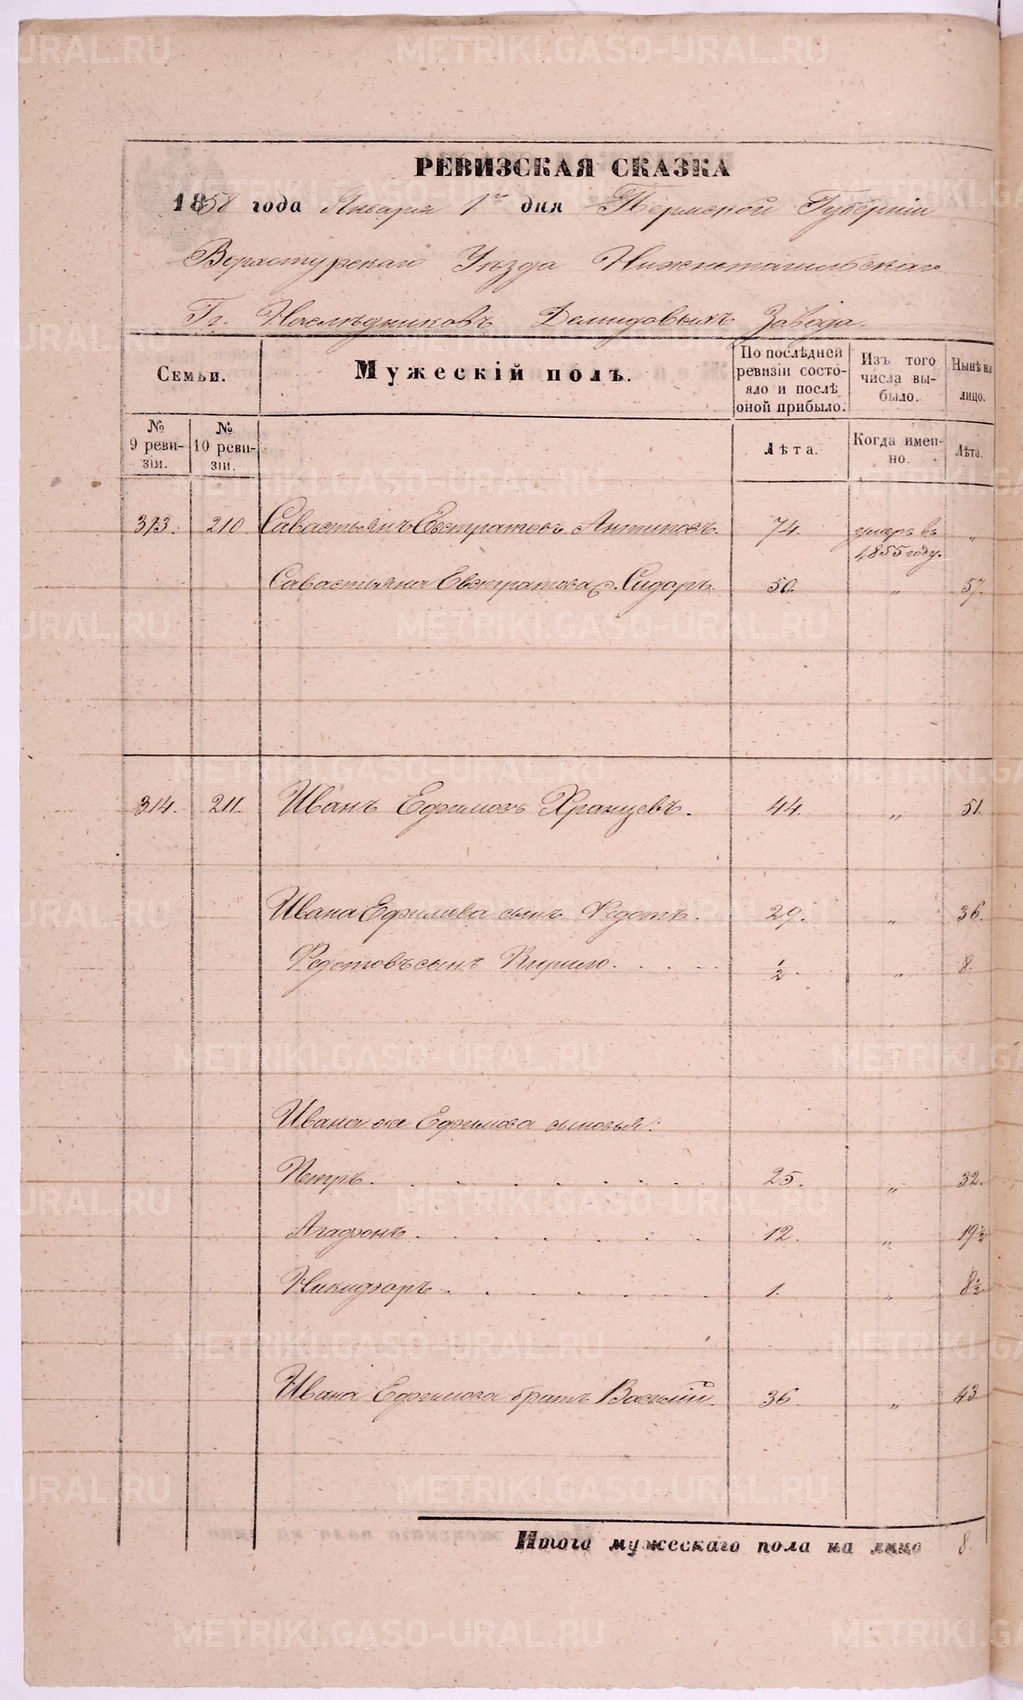 РЕВИЗСКАЯ СКАЗКА
1858 года Января 1го дня Пермской Губерніи
Верхотурскаго Уѣзда Нижнетагильскаго
Гг. Наслѣдниковъ Демидовыхъ Завода.
Семьи.
Мужескій полъ.
По послѣдней ревизіи состояло и послѣ оной прибыло.
Изъ того числа выбыло.
Нынѣ на лицо.
№ 9 ревизіи.
№ 10 ревизіи.
Лѣта.
Когда именно.
Лѣта.
313. 210. Савастьянъ Евстратовъ Антиповъ. 74. умеръ въ 1855 году. "
Савастьяна Евстратова с. Сидоръ. 50. " 57.
314. 211. Иванъ Ефимовъ Хранцевъ. 44. " 51.
Ивана Ефимова сынъ Федотъ. 29. " 36.
Федотовъ сынъ Кирило. 1/2 " 8.
Ивана же Ефимова сыновья:
Петръ. 25. " 32.
Агафонъ. 12. " 19 1/2
Никифоръ. 1. " 8 1/2
Ивана Ефимова братъ Василій. 36 " 43
Итого мужескаго пола на лицо 8.
METRIKI.GASO-URAL.RU